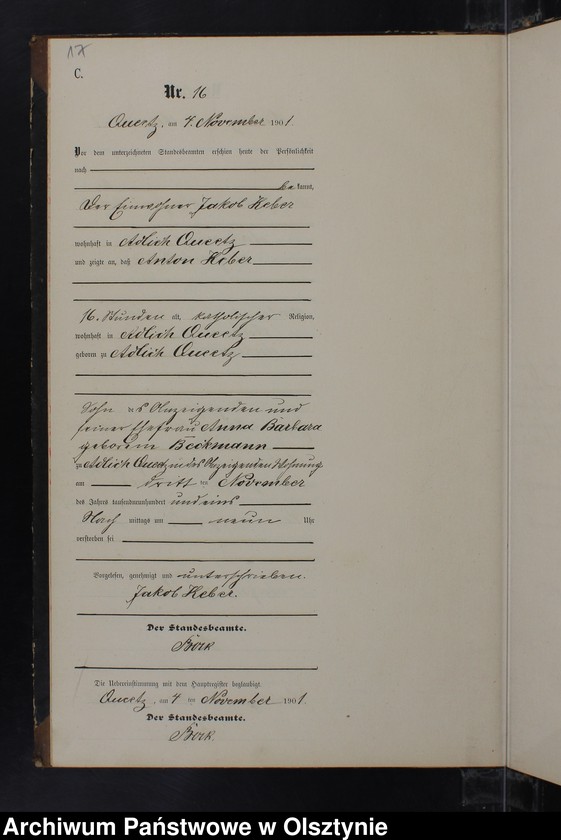 17
C.
Nr. 16
Queetz, am 4. November 1901.
Vor dem unterzeichneten Standesbeamten erschien heute der Persönlichkeit
nach
be kannt,
Der Einwohner Jakob Keber
wohnhaft in Adlich Queetz
und zeigte an, daß Anton Keber
16. Stunden alt, katholischer Religion,
wohnhaft in Adlich Queetz
geboren zu Adlich Queetz
Sohn des Anzeigenden und
seiner Ehefrau Anna Barbara
geborenen Beckmann
zu Adlich Queetz in des Anzeigenden Wohnung
am dritt ten November
des Jahres tausendneunhundert und eins
Nach mittags um neun Uhr
verstorben sei
Vorgelesen, genehmigt und unterschrieben.
Jakob Keber.
Der Standesbeamte.
Bork
Die Uebereinstimmung mit dem Hauptregister beglaubigt.
Queetz, am 4 ten November 1901.
Der Standesbeamte.
Bork.
Archiwum Państwowe w Olsztynie